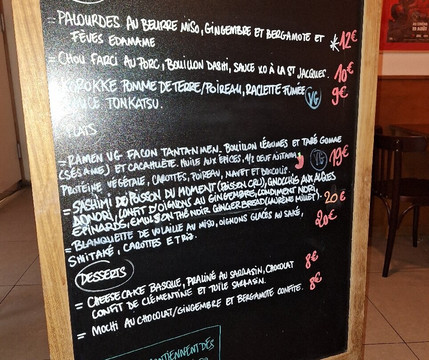 = PALOURDES AU BEURRE MISO, GINGEMBRE ET BERGAMOTE ET
FÈVES EDAMAME *12€
= CHOU FARCI AU PORC, BOUILLON DASHI, SAUCE XO À LA ST JACQUES. 10€
KOROKKE POMME DE TERRE/POIREAU, RACLETTE FUMÉE
SAUCE TONKATSU. VG 9€
PLATS
= RAMEN VG FAÇON TANTANMEN. BOUILLON LÉGUMES ET TARÉ GOMME
(SÉSAMES) ET CACAHUÈTE. HUILE AUX ÉPICES, 1/2 OEUF AJITAMA, VG 19€
PROTÉINE VÉGÉTALE, CAROTTES, POIREAU, NAVET ET BROCOLIS.
= SASHIMI DE POISSON DU MOMENT (POISSON CRU), GNOCCHIS AUX ALGUES
AONORI, CONFIT D'OIGNONS AU GINGEMBRE, CONDIMENT NORI,
ÉPINARDS, EMULSION THÉ NOIR GINGERBREAD 20€
= BLANQUETTE DE VOLAILLE AU MISO, OIGNONS GLACÉS AU SAKÉ,
SHIITAKÉ, CAROTTES ET RIZ. 20€
DESSERTS
= CHEESECAKE BASQUE, PRALINÉ AU SARRASIN, CHOCOLAT
CONFIT DE CLÉMENTINE ET TUILE SARRASIN. 8€
= MOCHI AU CHOCOLAT/GINGEMBRE ET BERGAMOTE CONFITE. 8€
CONTIENNENT DES